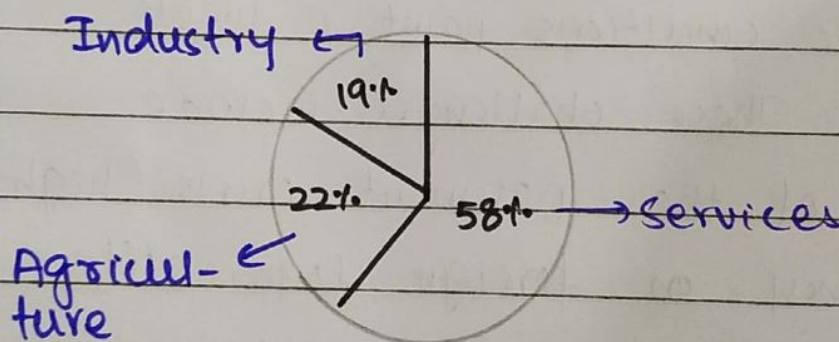 Industry
19%
22%
58%
Services
Agricul-
ture